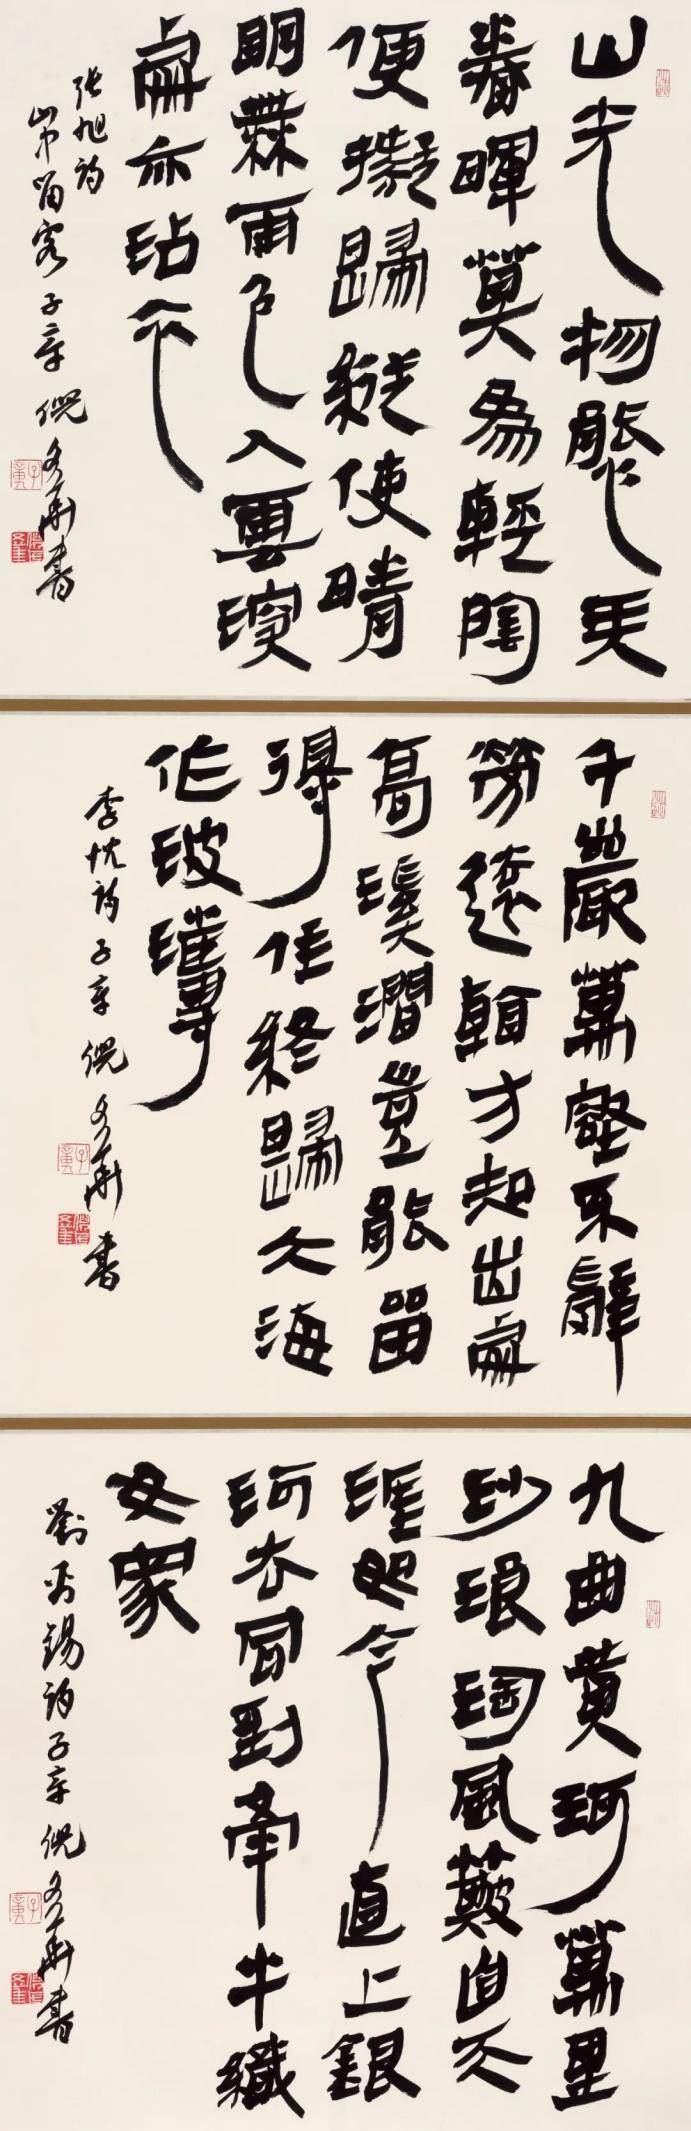 山光物態弄
春暉莫為輕陰
便擬歸縱使晴
明無雨色入雲深
處亦沾衣
張旭詩
山中留客 子辛 倪 書
千巖萬壑不辭
勞遠看方知出處
高溪澗豈能留
得住終歸大海
作波濤
李忱詩 子辛 倪 書
九曲黃河萬里
沙浪淘風簸自天
涯如今直上銀
河去同到牽牛織
女家
劉禹錫詩 子辛 倪 書